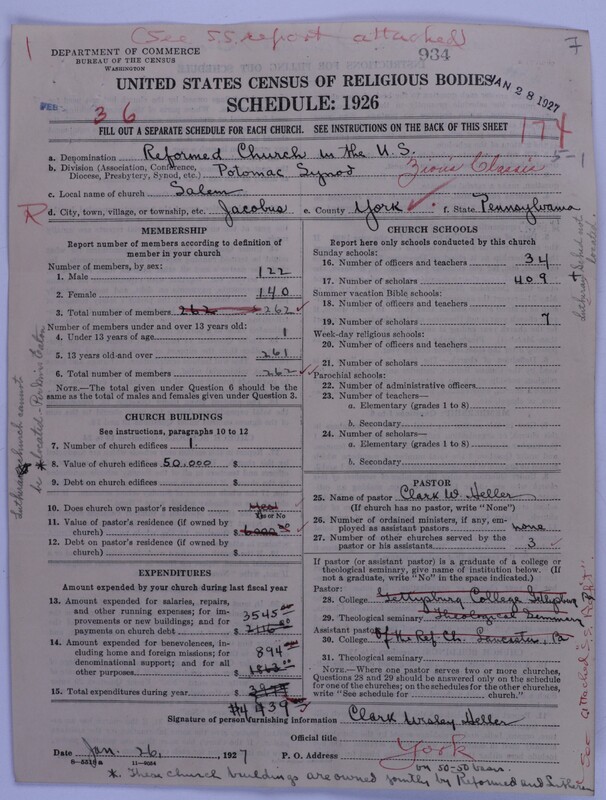 (See SS. report attached)
1
934
7
DEPARTMENT OF COMMERCE
BUREAU OF THE CENSUS
WASHINGTON
UNITED STATES CENSUS OF RELIGIOUS BODIES
JAN 28 1927
SCHEDULE: 1926
FEB
3 6
174
FILL OUT A SEPARATE SCHEDULE FOR EACH CHURCH. SEE INSTRUCTIONS ON THE BACK OF THIS SHEET
5-1
a. Denomination Reformed Church in the U.S.
b. Division (Association, Conference, Diocese, Presbytery, Synod, etc.) Potomac Synod Zion's Classis
c. Local name of church Salem
R d. City, town, village, or township, etc. Jacobus e. County York f. State Pennsylvania
MEMBERSHIP
Report number of members according to definition of member in your church
Number of members, by sex:
1. Male 122
2. Female 140
3. Total number of members 262 262
Number of members under and over 13 years old:
4. Under 13 years of age 1
5. 13 years old and over 261
6. Total number of members 262
NOTE.—The total given under Question 6 should be the same as the total of males and females given under Question 3.
CHURCH BUILDINGS
See instructions, paragraphs 10 to 12
7. Number of church edifices 1
8. Value of church edifices 50.000 $
9. Debt on church edifices $
10. Does church own pastor's residence Yes
Yes or No
11. Value of pastor's residence (if owned by church) $ 6000.00
12. Debt on pastor's residence (if owned by church) $
EXPENDITURES
Amount expended by your church during last fiscal year
13. Amount expended for salaries, repairs, and other running expenses; for improvements or new buildings; and for payments on church debt $ 3545
14. Amount expended for benevolences, including home and foreign missions; for denominational support; and for all other purposes $ 894
15. Total expenditures during year $
$4439
CHURCH SCHOOLS
Report here only schools conducted by this church
Sunday schools:
16. Number of officers and teachers 34
17. Number of scholars 409
Summer vacation Bible schools:
18. Number of officers and teachers
19. Number of scholars 7
Week-day religious schools:
20. Number of officers and teachers
21. Number of scholars
Parochial schools:
22. Number of administrative officers
23. Number of teachers—
a. Elementary (grades 1 to 8)
b. Secondary
24. Number of scholars—
a. Elementary (grades 1 to 8)
b. Secondary
PASTOR
25. Name of pastor Clark W. Heller
(If church has no pastor, write "None")
26. Number of ordained ministers, if any, employed as assistant pastors none
27. Number of other churches served by the pastor or his assistants 3
If pastor (or assistant pastor) is a graduate of a college or theological seminary, give name of institution below. (If not a graduate, write "No" in the space indicated.)
Pastor:
28. College Gettysburg College
29. Theological seminary Theological Seminary
Assistant pastor:
30. College of the Ref. Ch. Lancaster, Pa
31. Theological seminary
NOTE.—Where one pastor serves two or more churches, Questions 28 and 29 should be answered only on the schedule for one of the churches; on the schedules for the other churches, write "See schedule for church."
Signature of person furnishing information Clark Wesley Heller
Official title
Date Jan. 26, 1927 P. O. Address York
on 50-50 basis.
*. These church buildings are owned jointly by Reformed and Lutheran
Lutheran church cannot
be located
Lutheran Sched not
located.
See attached S.S. Rept